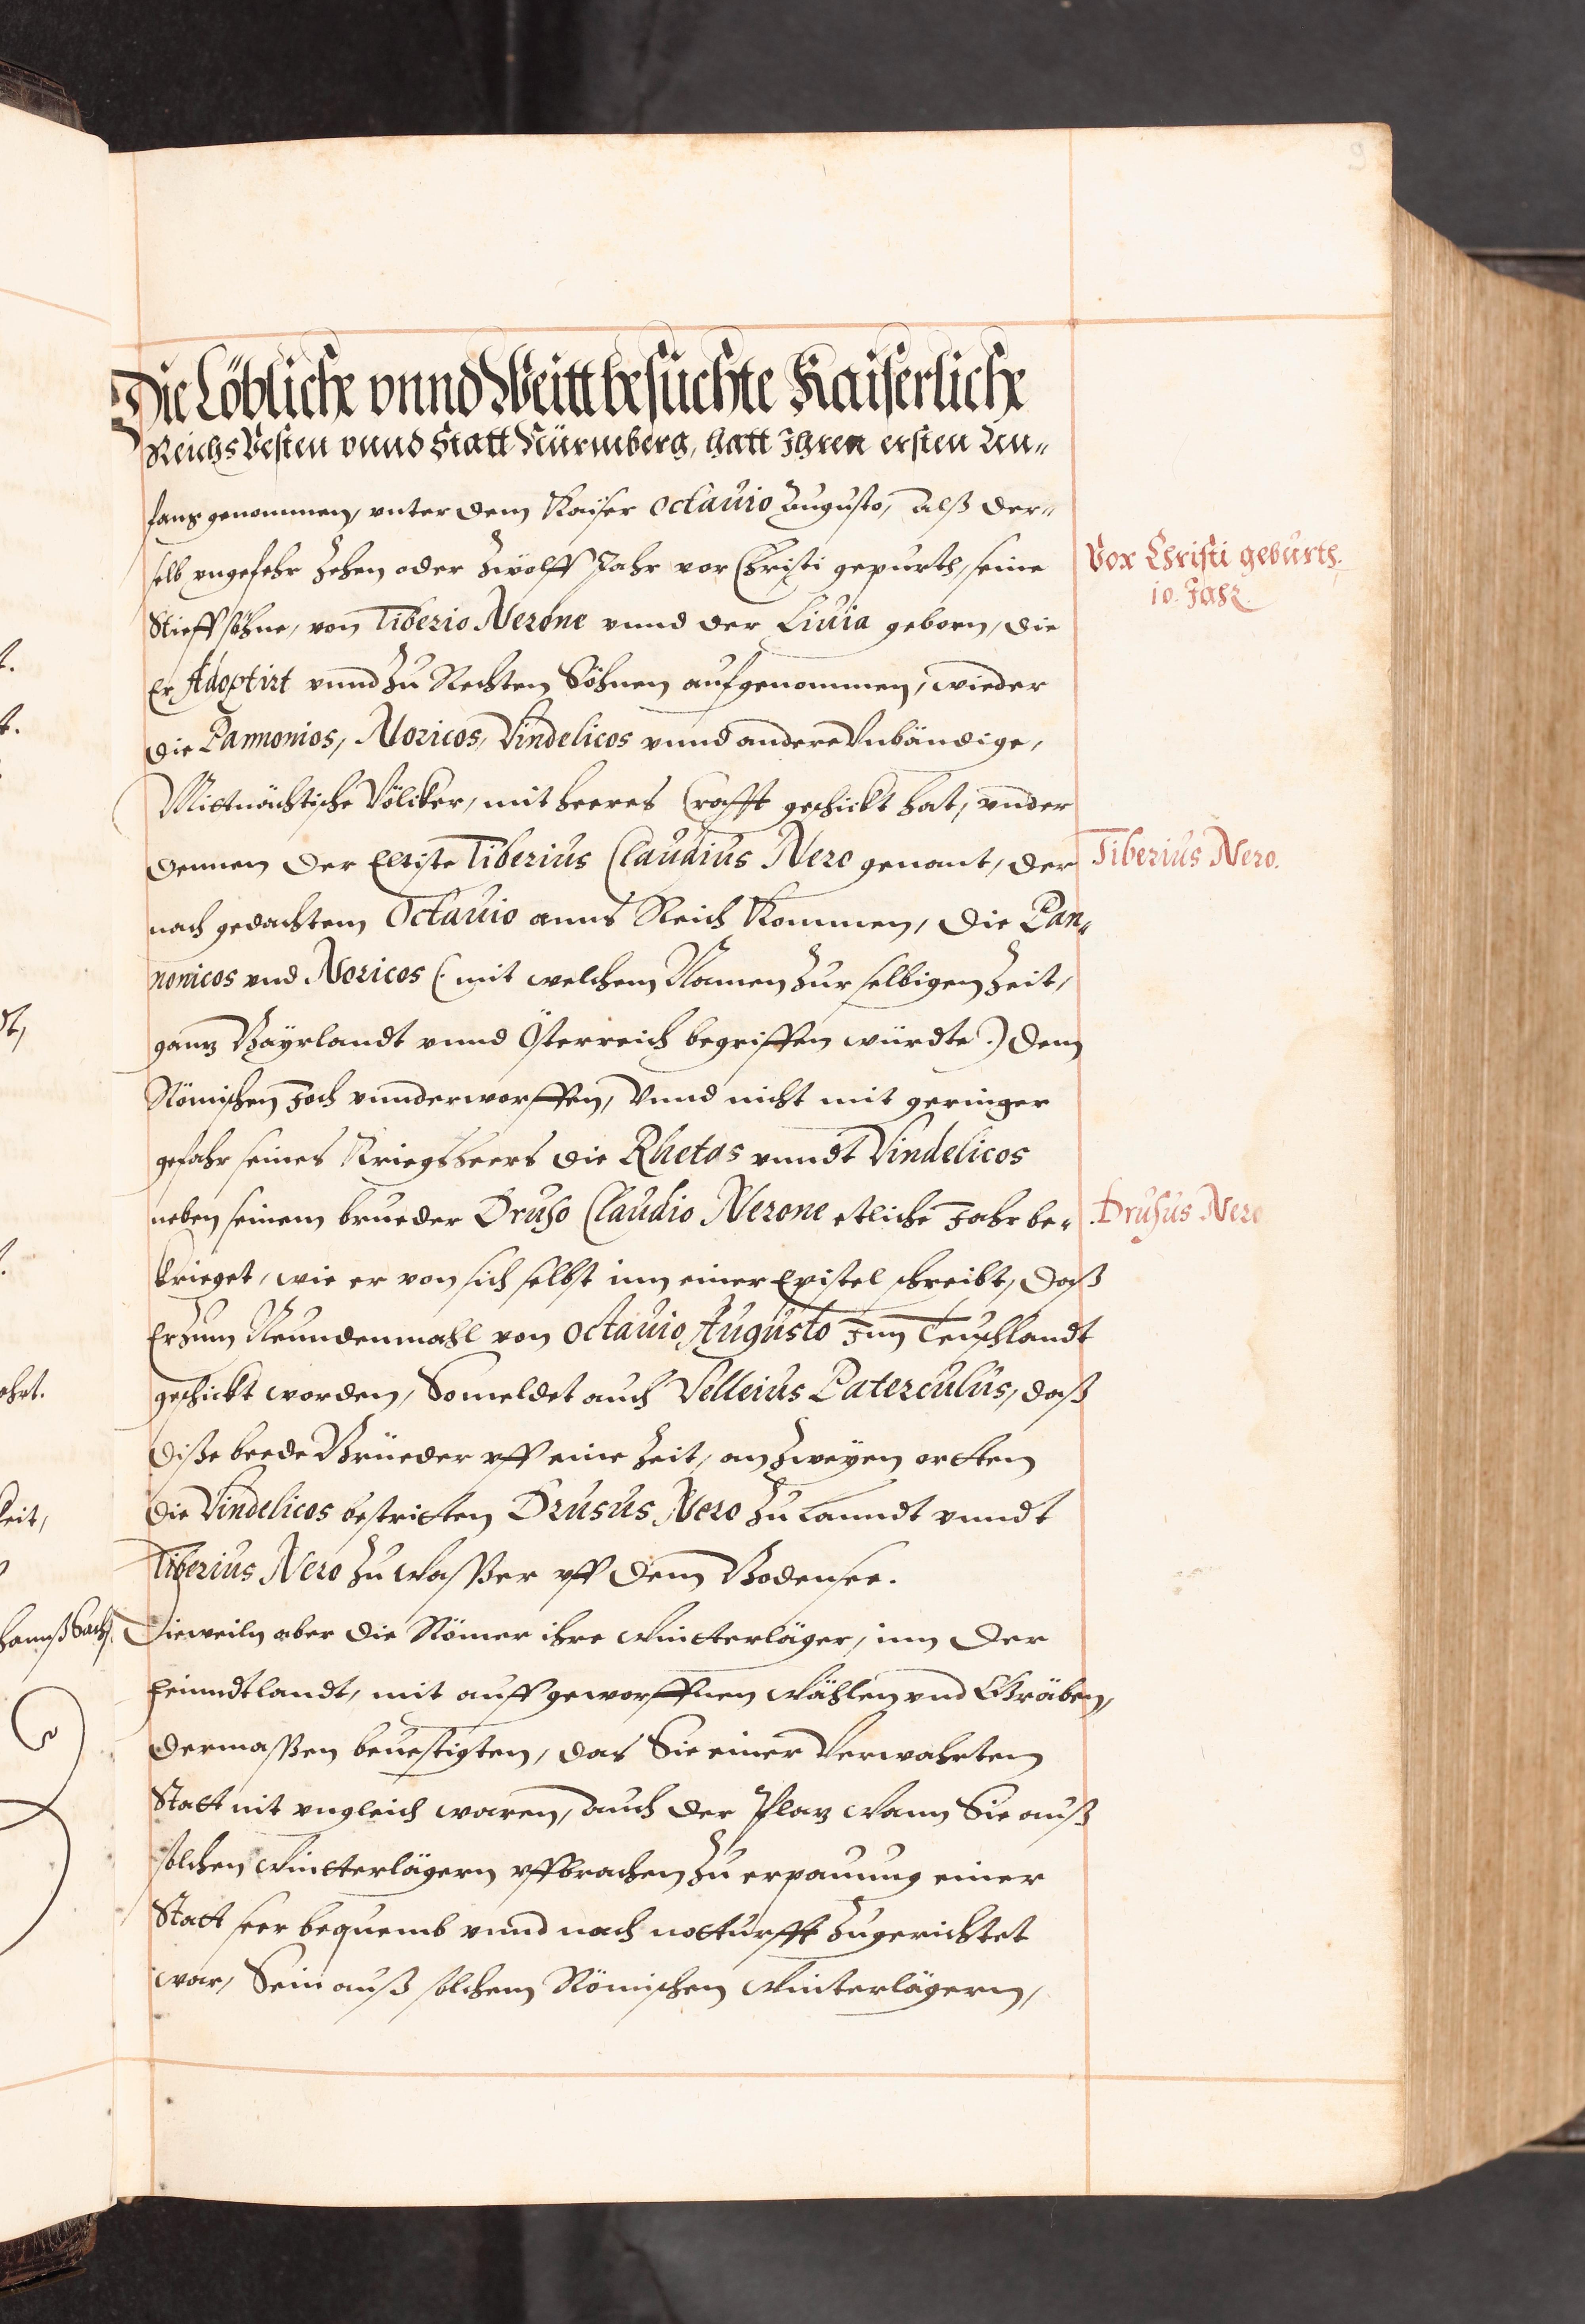 9
Die Löbliche vnnd Weittbesuchte Kaiserliche
Reichs Vesten vnnd Statt Nürmberg, hatt Ihren ersten An„
fang genommen, vnter dem Kaÿser Octauio Augusto, alß der„
selb vngefehr Zehen oder Zwölff Jahr vor Christi gepurth, seine
Vor Christi geburth.
10. Jahr.
Stieffsöhne, von Tiberio Nerone vnnd der Liuia geborn, die
Er Adoptirt vnnd Zu Rechten Söhnen aufgenommen, wieder
die Pannonios, Noricos, Vindelicos vnnd andere Vnbändige,
Mittnächtische Völcker, mit heeres Crafft geschickt hat, vnder
dennen der Eltiste Tiberius Claudius Nero genant, der
Tiberius Nero.
nach gedachtem Octauio anns Reich Kommen, die Pan„
nonicos vnd Noricos (: mit welchem Namen Zur selbigen Zeit,
gantz Bäyrlandt vnnd Österreich begriffen würdte :) dem
Römischen Joch vnnderworffen, Vnnd nicht mit geringer
gefahr seines Kriegsheers die Rhetos vnndt Vindelicos
neben seinem brueder Druso Claudio Nerone etliche Jahr be„
Drusus Nero
krieget, wie er von sich selbst inn einer Epistel schreibt, daß
Er Zum Neundenmahl von Octauio Augusto Inn Teuschlandt
geschickt worden, So meldet auch Velleius Paterculus, daß
diße beede Brüeder vff eine Zeit, an Zweyen ortten
die Vindelicos bestritten Drusus Nero Zu Lanndt vnndt
Tiberius Nero Zu Waßer vff dem Bodensee.
Dieweiln aber die Römer ihre Wintterläger, inn der
Feinndtlandt, mit auffgeworffnen Wählen vnd Gräben,
dermaßen beuestigten, das Sie einer Verwahrten
Statt nit vngleich waren, auch der Platz Wann Sie auß
solchen Wintterlägern vffbrachen Zu erpauung einer
Statt seer bequemb vnnd nach notturfft Zugerichtet
war, Sein auß solchem Römischen Winterlägern,